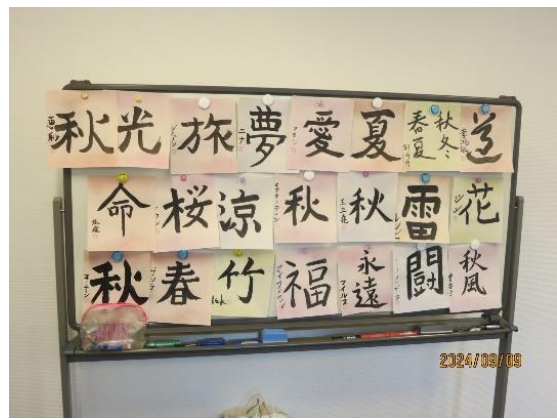 秋光 旅 夢 愛 夏 春夏秋冬 道
命 桜 涼 秋 秋 雷 花
秋 春 竹 福 永遠 闘 秋風
マイルス
2024/09/09